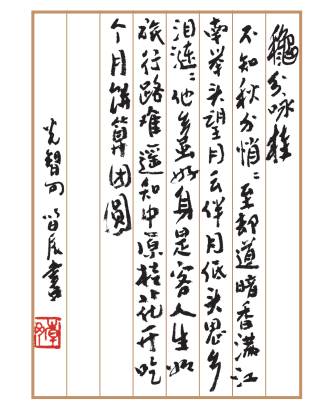 龝分咏桂
不知秋分悄〻至却道暗香满江
南举头望月云伴月低头思乡
泪涟〻他乡虽好身是客人生如
旅行路难遥知中原桂花开吃
个月饼算团圆